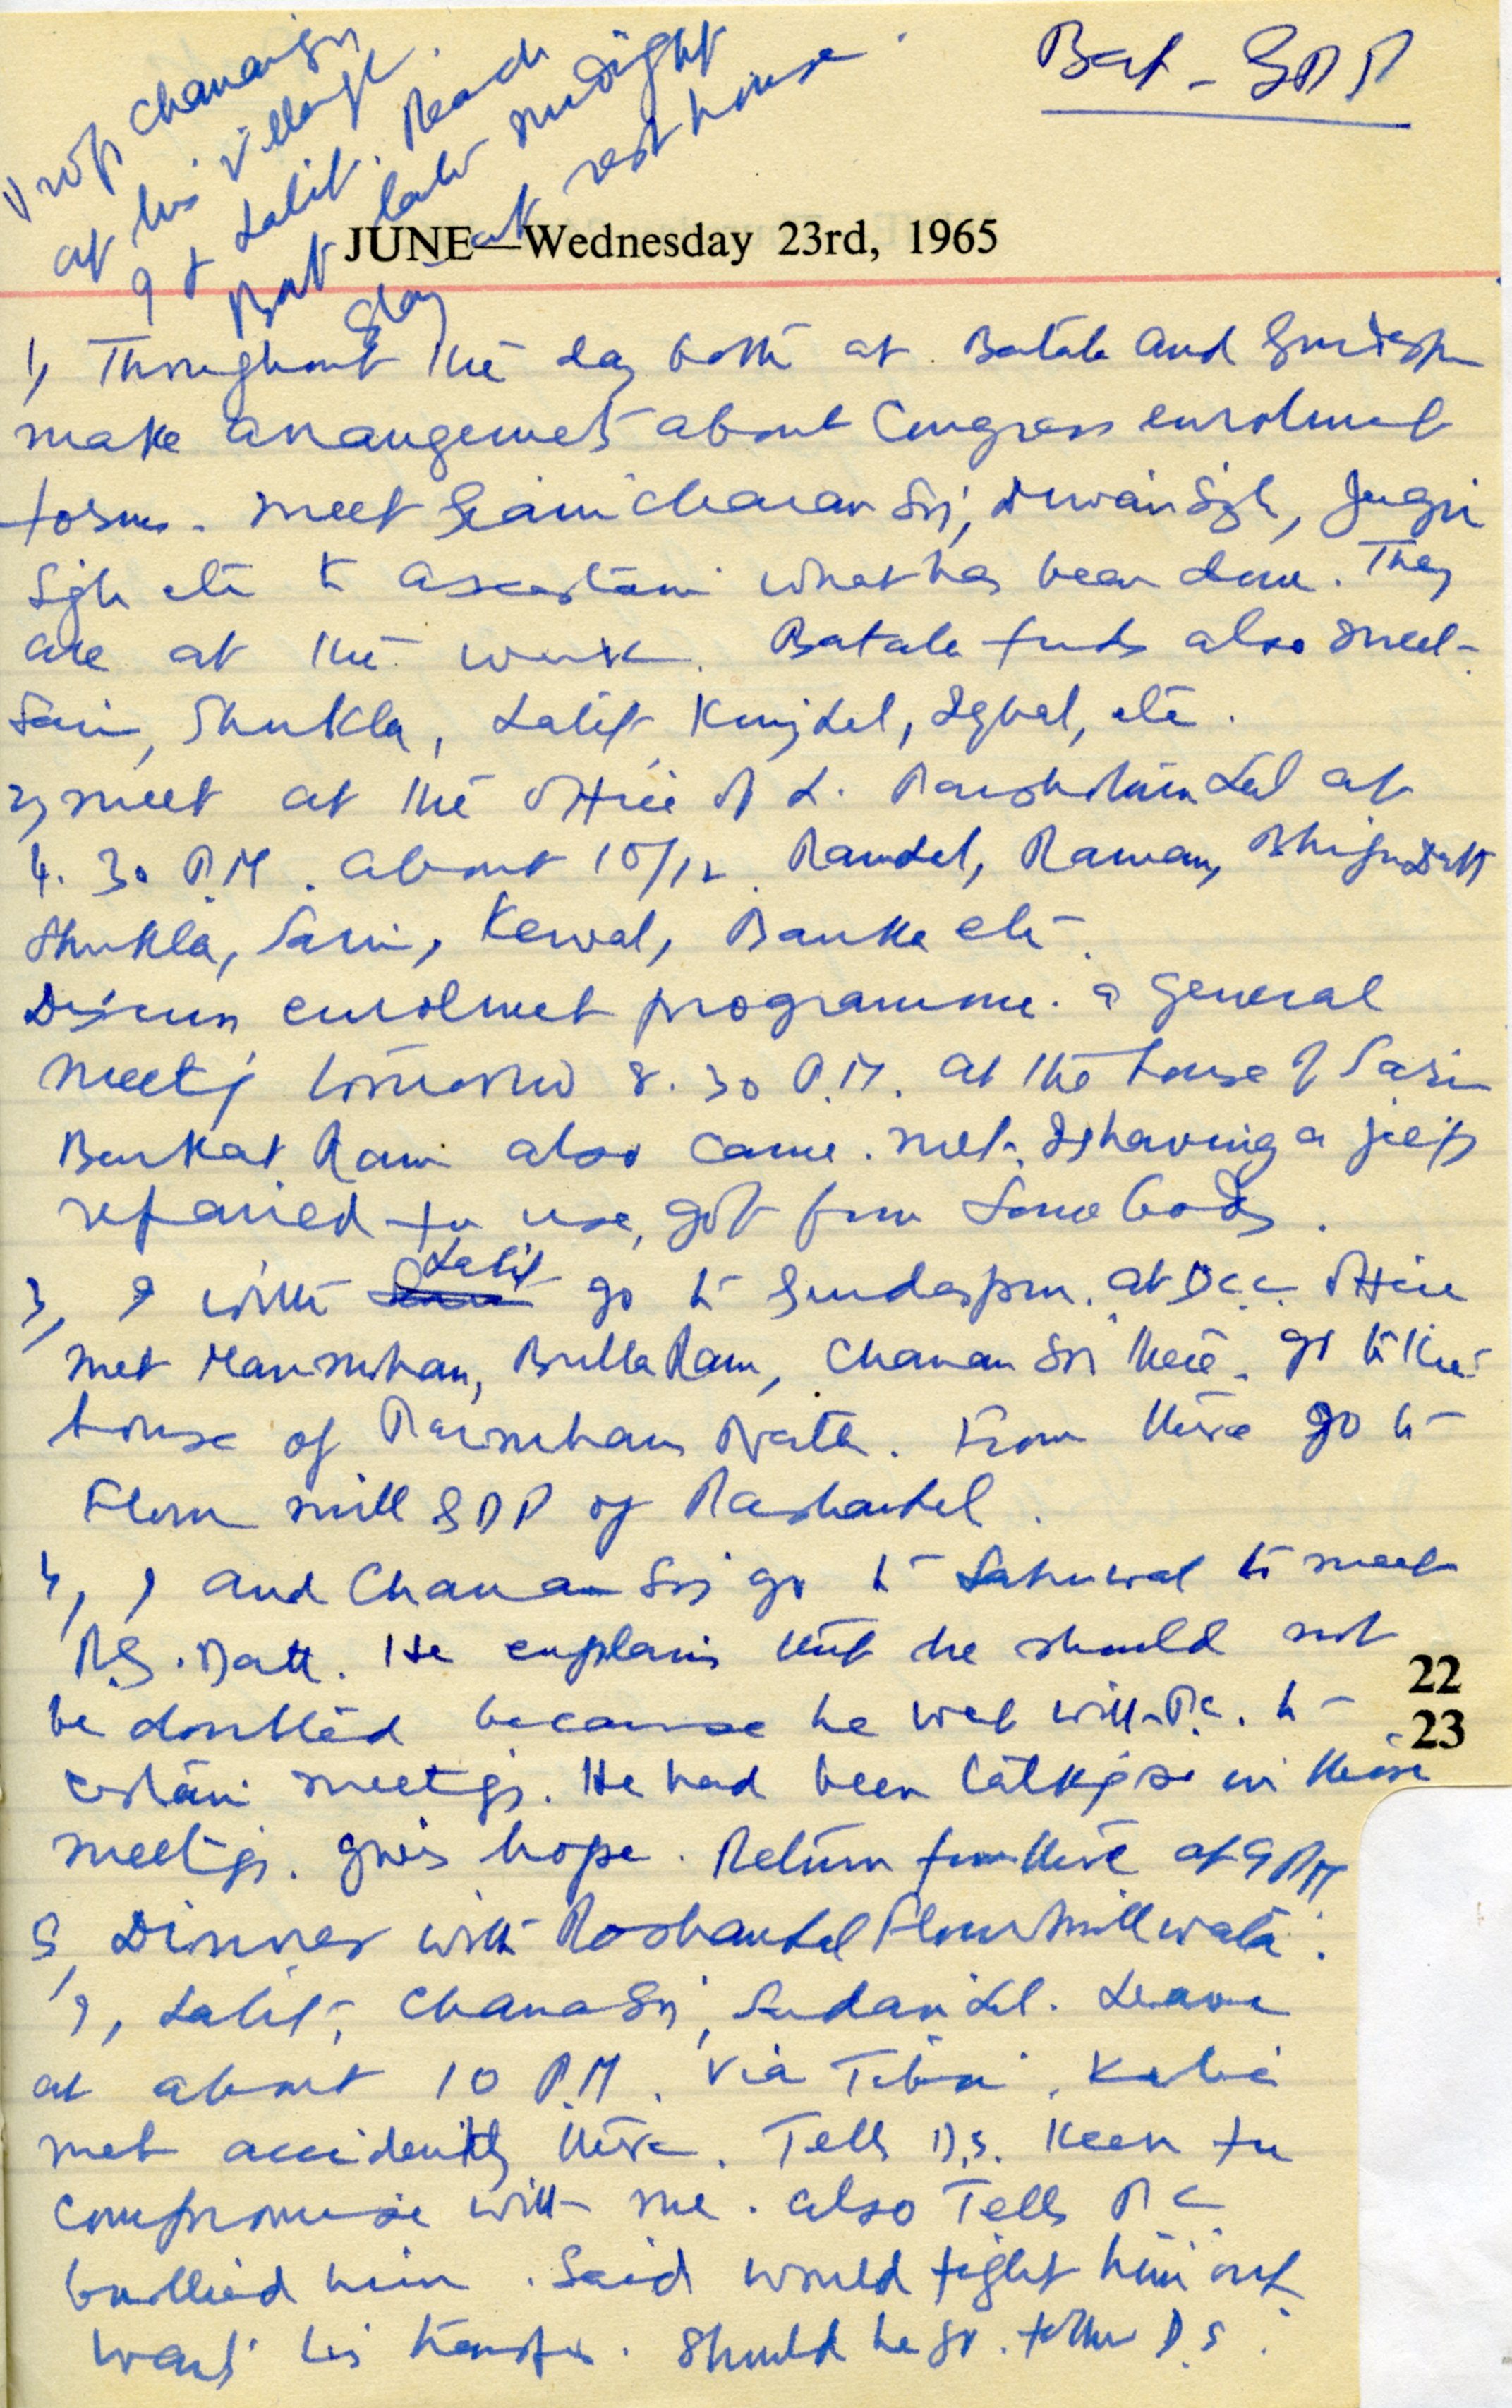 Bat - GDP
Drop Chanansgh
at his village.
I & Lalit. Reach
Bat late midnight
stay at rest house.
JUNE—Wednesday 23rd, 1965
1, Throughout the day both at Batala and Gurdaspur
make arrangements about Congress enrolment
forms. meet Chanan Sgh, Diwan Sgh,
Sgh etc to ascertain what has been done. They
are at the work. Batala frds also meet -
Sain, Shukla, Lalit, Kunjlal, Iqbal, etc.
2, meet at the office of L. Lal at
4.30 P.M. about 10/12. Ramlal, Raman, Bhigu Datt
Shukla, Sain, Kewal, Banka etc.
Discuss enrolment programme. a general
meetg tomorrow 8.30 P.M. at the house of
Burkat Ram also came. met. Is having a jeep
repaired for use, got from some body.
3, I with Lalit go to Gurdaspur. at DCC office
met Manmohan, Bulla Ram, Chanan Sgh there. go to the
house of Nath. From there go to
Flour mill GDP of Roshanlal.
4, I and Chanan Sgh go to to meet
Datt. He explains that he should not
be doubted because he went with P.C. to
certain meetgs. He had been talkg so in these
meetgs. gives hope. Return from there at 9 PM
5, Dinner with Roshanlal Flour Mill wala.
I, Lalit, Chanan Sgh, Lal. Leave
at about 10 P.M. Via
met accidently there. Tells D.S. keen for
compromise with me. also Tells P C
bullied him. Said would fight him out
want his transfer. Should he go. follow D.S.
22
23